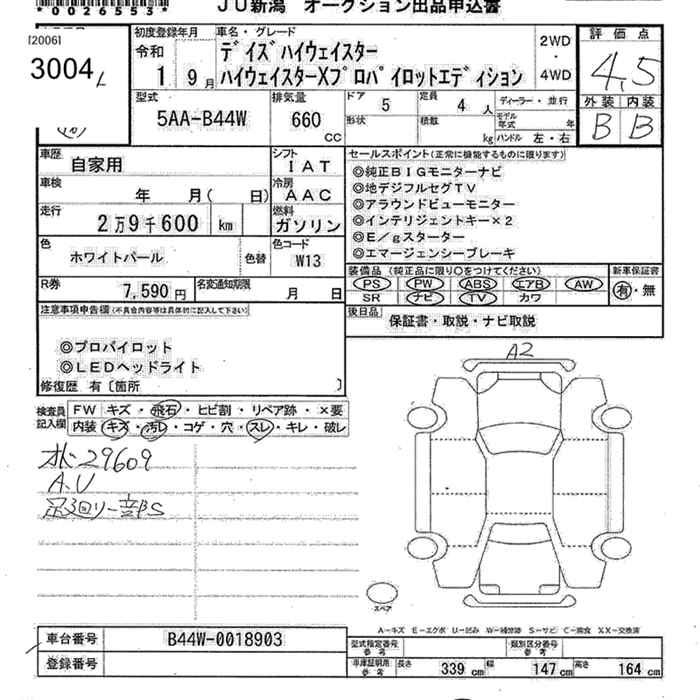 *0026553*
JU新潟 オークション出品申込書
[2006]
3004
初度登録年月
令和
1 9月
車名・グレード
デイズハイウェイスター
ハイウェイスターXプロパイロットエディション
2WD
・
4WD
評価点
4.5
外装 内装
B B
型式
5AA-B44W
排気量
660 CC
ドア 5
定員 4人
形状
積載 kg
ディーラー・並行
モデル年式 年
ハンドル 左・右
車歴
自家用
シフト
IAT
車検
年 月( 日)
冷房
AAC
走行
2万9千600 km
燃料
ガソリン
色
ホワイトパール
色替
色コード
W13
R券
7,590円
名変通知期限
月 日
セールスポイント(正常に機能するものに限ります)
◎純正BIGモニターナビ
◎地デジフルセグTV
◎アラウンドビューモニター
◎インテリジェントキー×2
◎E/gスターター
◎エマージェンシーブレーキ
装備品(純正品に限り○をつけてください)
PS PW ABS エアB AW
SR ナビ TV カワ
新車保証書
有・無
後日品
保証書・取説・ナビ取説
注意事項申告欄(不具合内容等は具体的に記入して下さい)
◎プロパイロット
◎LEDヘッドライト
修復歴 有[箇所 ]
検査員記入欄
FW キズ・飛石・ヒビ割・リペア跡・×要
内装・キズ・汚レ・コゲ・穴・スレ・キレ・破レ
29609
A.U
足廻リ一部S
A2
スペア
A-キズ E-エクボ U-凹み W-補修跡 S-サビ C-腐食 XX-交換済
車台番号
B44W-0018903
登録番号
型式指定番号 参考
類別区分番号 参考
車庫証明用 参考
長さ 339 cm 幅 147 cm 高さ 164 cm